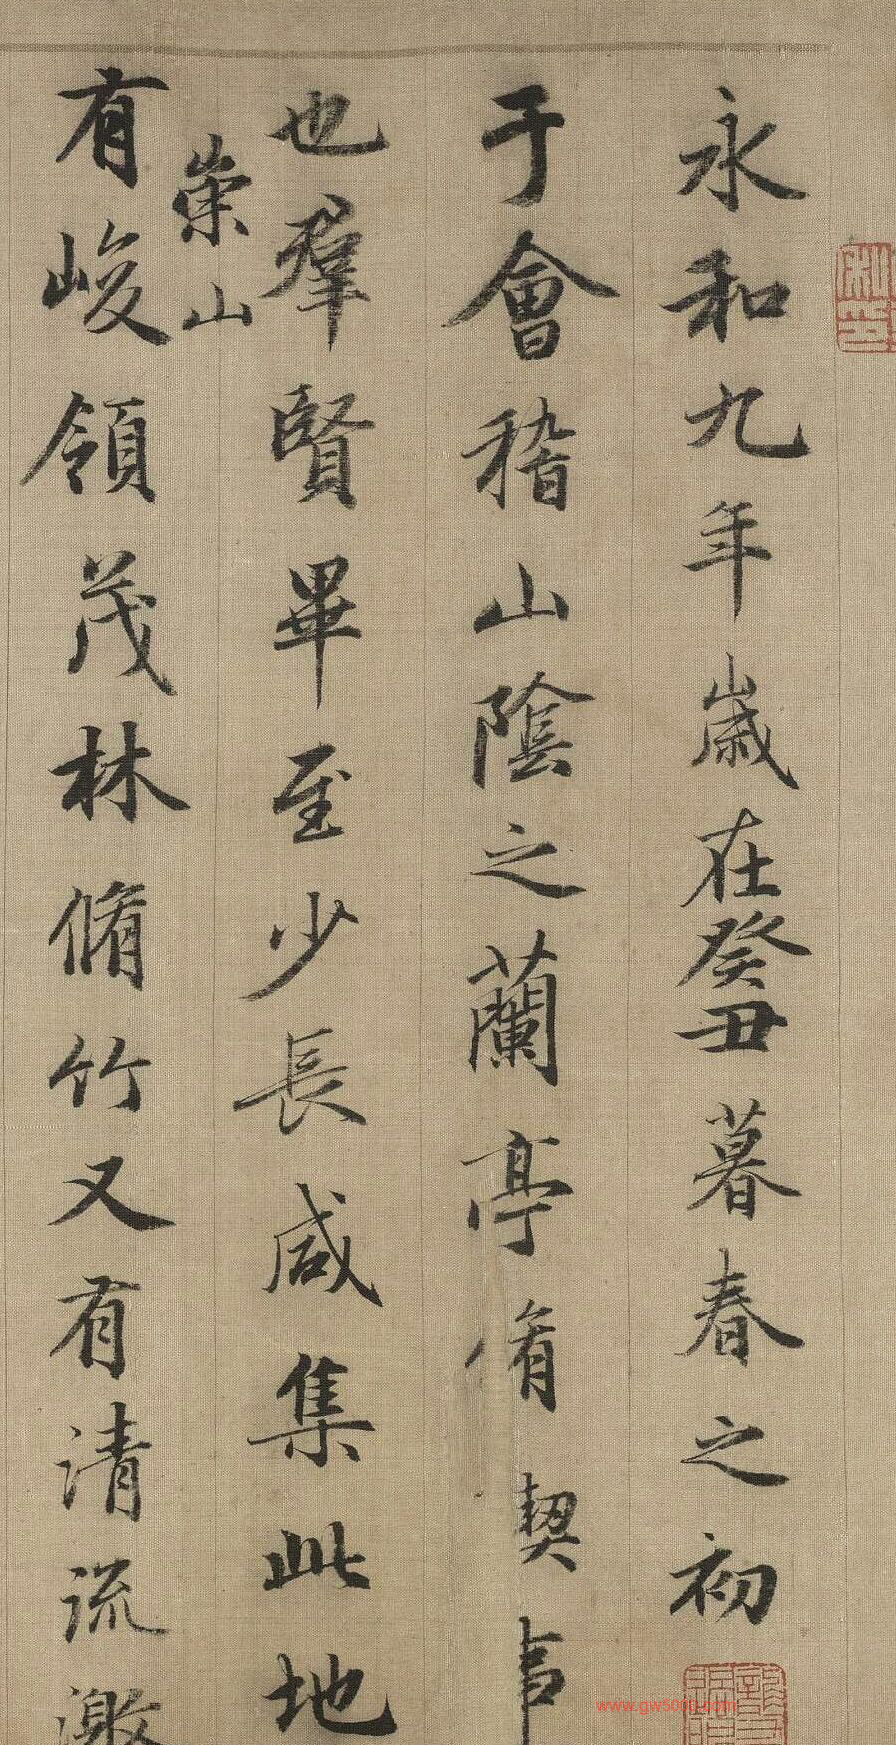 永和九年歲在癸丑暮春之初
于會稽山陰之蘭亭脩契事
也羣賢畢至少長咸集此地
崇山
有峻領茂林脩竹又有清流激
www.gw5000.com